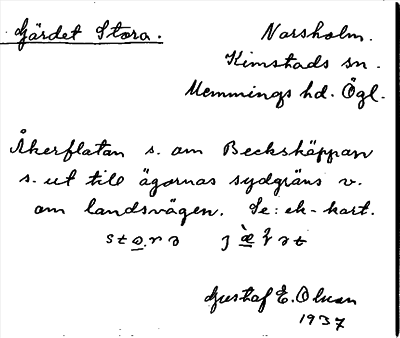 Gärdet Stora.
Norsholm.
Kimstads sn.
Memmings hd. Ögl.
Åkerflatan s. om Beckskäppan
s. ut till ägornas sydgräns v.
om landsvägen. Se: ek-kart.
Gustaf E. Olsson
1937